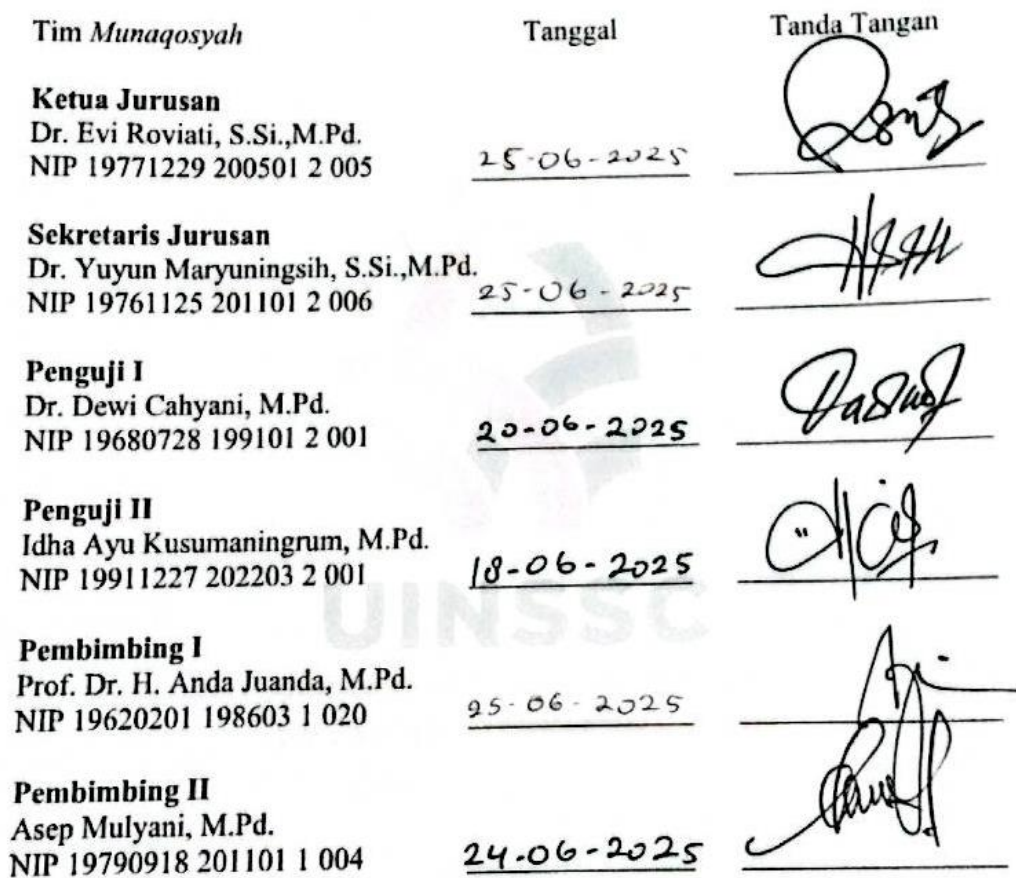 Tim Munaqosyah Tanggal Tanda Tangan
Ketua Jurusan
Dr. Evi Roviati, S.Si.,M.Pd.
NIP 19771229 200501 2 005 25-06-2025
Sekretaris Jurusan
Dr. Yuyun Maryuningsih, S.Si.,M.Pd.
NIP 19761125 201101 2 006 25-06-2025
Penguji I
Dr. Dewi Cahyani, M.Pd.
NIP 19680728 199101 2 001 20-06-2025
Penguji II
Idha Ayu Kusumaningrum, M.Pd.
NIP 19911227 202203 2 001 18-06-2025
UINSSC
Pembimbing I
Prof. Dr. H. Anda Juanda, M.Pd.
NIP 19620201 198603 1 020 25-06-2025
Pembimbing II
Asep Mulyani, M.Pd.
NIP 19790918 201101 1 004 24-06-2025